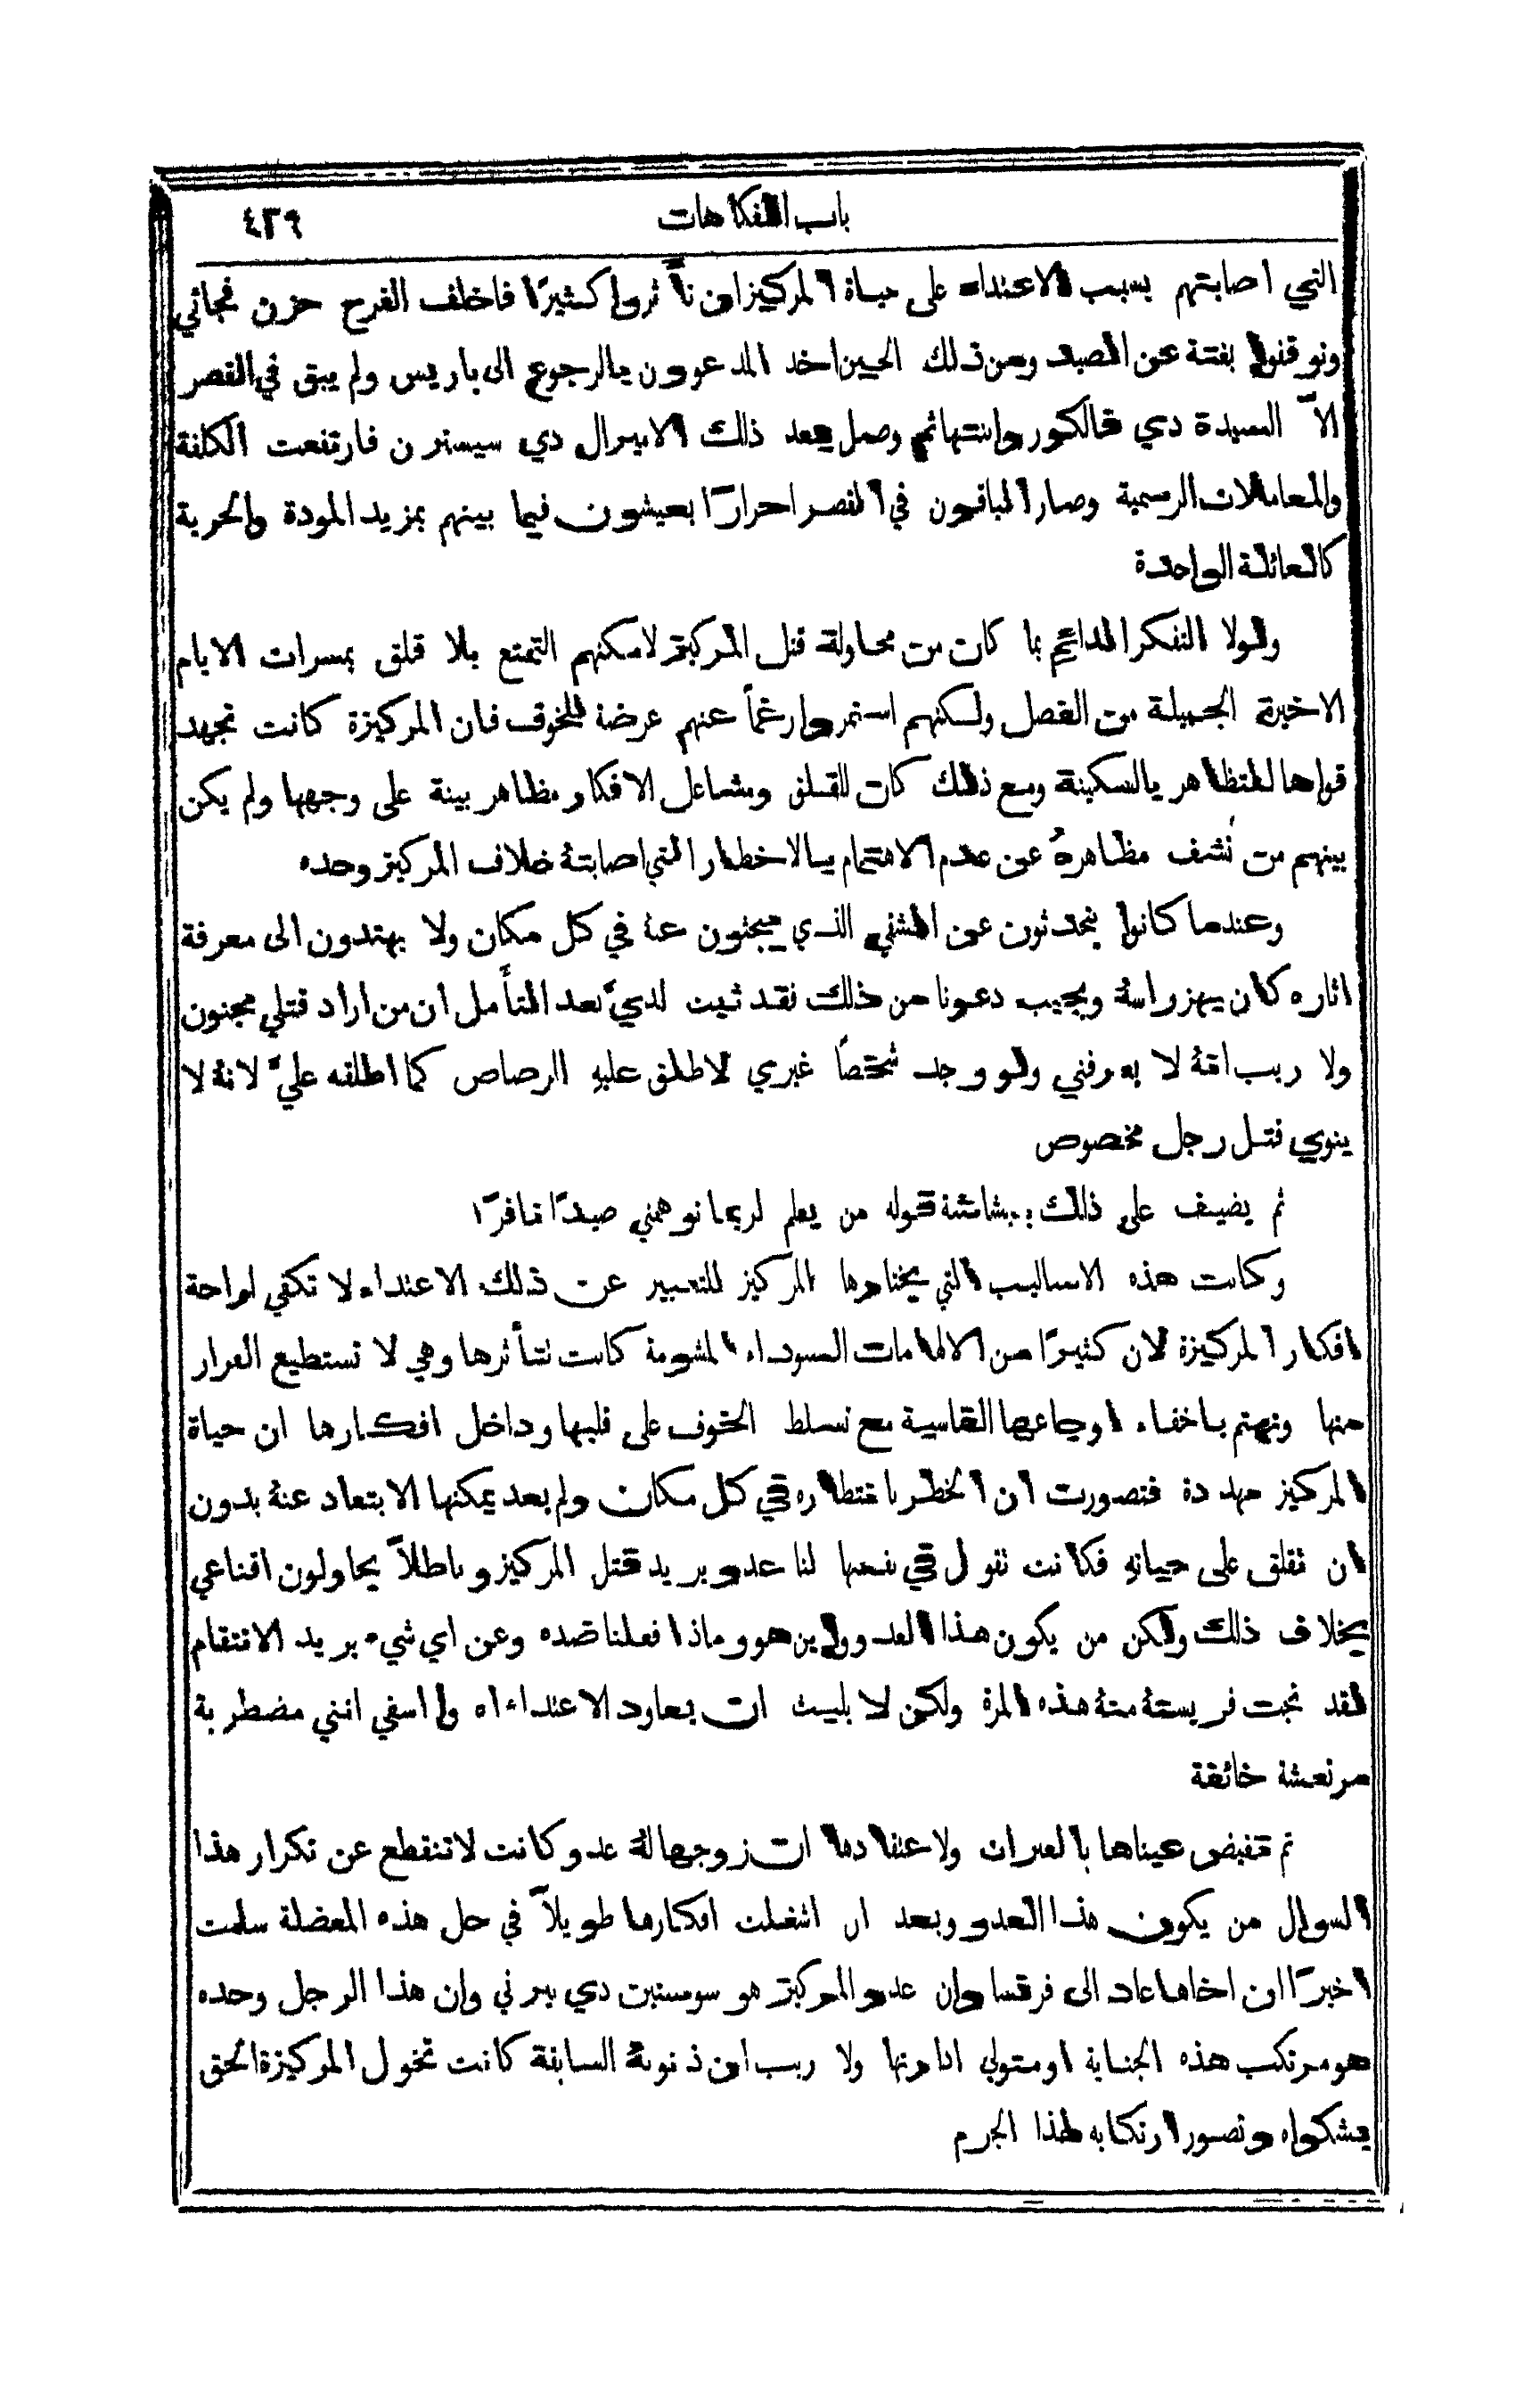 باب الفكاهات ٤٢٩
التي اصابتهم بسبب الاعتداء على حياة المركيز وتأثروا كثيرًا فاخلف الفرح حزن فجائي
وتوقفوا بغتة عن الصيد ومن ذلك الحين اخذ المدعوون بالرجوع الى باريس ولم يبق في القصر
الاَّ السيدة دي فالكور وابنتها ثم وصل بعد ذلك الاميرال دي سيسترن فارتفعت الكلفة
والمعاملات الرسمية وصار الباقون في القصر احرارًا يعيشون فيما بينهم بمزيد المودة والحرية
كالعائلة الواحدة
ولولا التفكر الدائم بما كان من محاولة قتل المركيز لامكنهم التمتع بلا قلق بمسرات الايام
الاخيرة الجميلة من الفصل ولكنهم استمروا رغماً عنهم عرضة للخوف فان المركيزة كانت تجهد
قواها للتظاهر بالسكينة ومع ذلك كان للقلق ومشاغل الافكار مظاهر بينة على وجهها ولم يكن
بينهم من تشف مظاهرهُ عن عدم الاهتمام بالاخطار التي اصابتهُ خلاف المركيز وحده
وعندما كانوا يتحدثون عن الشقي الذي يبحثون عنهُ في كل مكان ولا يهتدون الى معرفة
اثاره كان يهز راسهُ ويجيب دعونا من ذلك فقد ثبت لديَّ بعد التأمل ان من اراد قتلي مجنون
ولا ريب انهُ لا يعرفني ولو وجد شخصًا غيري لاطلق عليهِ الرصاص كما اطلقه عليَّ لانهُ لا
ينوي قتل رجل مخصوص
ثم يضيف على ذلك ببشاشة قوله من يعلم لربما توهمني صيدًا نافرًا
وكانت هذه الاساليب التي يختارها المركيز للتعبير عن ذلك الاعتداء لا تكفي لراحة
افكار المركيزة لان كثيرًا من الالهامات السوداء المشومة كانت تتأثرها وهي لا تستطيع الفرار
منها وتهتم باخفاء اوجاعها القاسية مع تسلط الخوف على قلبها وداخل افكارها ان حياة
المركيز مهددة فتصورت ان الخطر بانتظاره في كل مكان ولم يعد يمكنها الابتعاد عنهُ بدون
ان تقلق على حياتهِ فكانت تقول في نفسها لنا عدو يريد قتل المركيز وباطلاً يحاولون اقناعي
بخلاف ذلك ولكن من يكون هذا العدو واين هو وماذا فعلنا ضده وعن اي شيء يريد الانتقام
لقد نجت فريستهُ منهُ هذه المرة ولكن لا يلبث ان يعاود الاعتداء اه وا اسفي انني مضطربة
مرتعشة خائفة
ثم تفيض عيناها بالعبرات ولاعتقادها ان زوجها لهُ عدو كانت لا تنقطع عن تكرار هذا
السوال من يكون هذا العدو وبعد ان اشغلت افكارها طويلاً في حل هذه المعضلة سلمت
اخيرًا ان اخاها عاد الى فرنسا وان عدو المركيز هو سوستين دي بيرني وان هذا الرجل وحده
هو مرتكب هذه الجناية او متولي ادارتها ولا ريب ان ذنوبهُ السابقة كانت تخول المركيزة الحق
بشكواه وتصور ارتكابه لهذا الجرم